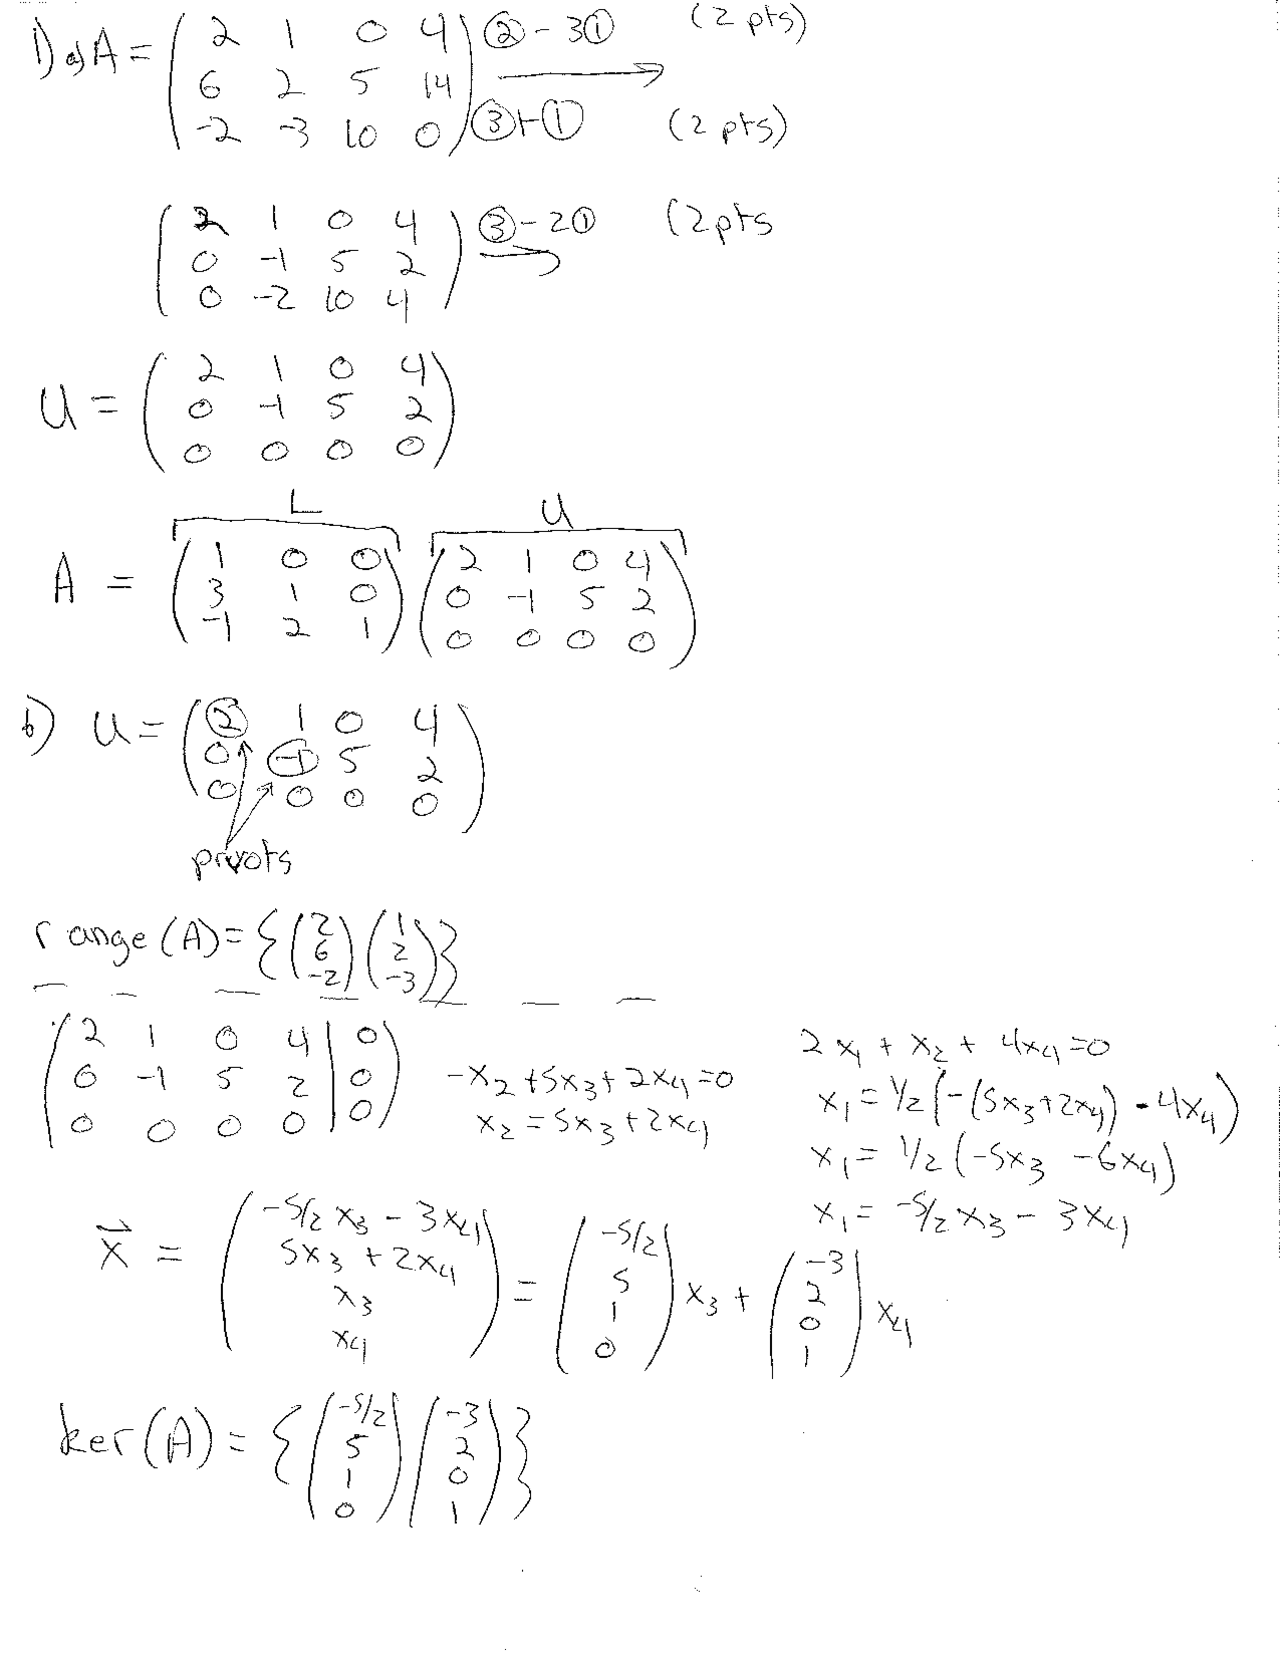 1) a) A = ( 2 1 0 4 ) ② - 3① (2 pts)
( 6 2 5 14 ) →
( -2 -3 10 0 ) ③+① (2 pts)
( 2 1 0 4 ) ③-2① (2pts
( 0 -1 5 2 ) →
( 0 -2 10 4 )
( 2 1 0 4 )
U = ( 0 -1 5 2 )
( 0 0 0 0 )
L U
( 1 0 0 ) ( 2 1 0 4 )
A = ( 3 1 0 ) ( 0 -1 5 2 )
( -1 2 1 ) ( 0 0 0 0 )
b) U = ( 2 1 0 4 )
( 0 -1 5 2 )
( 0 0 0 0 )
pivots
range(A) = { ( 2 6 -2 ) ( 1 2 -3 ) }
( 2 1 0 4 | 0 )
( 0 -1 5 2 | 0 )
( 0 0 0 0 | 0 )
-x₂+5x₃+2x₄=0
x₂=5x₃+2x₄
2x₁ + x₂ + 4x₄=0
x₁ = 1/2 (-(5x₃+2x₄) - 4x₄)
x₁ = 1/2 (-5x₃ - 6x₄)
x₁ = -5/2 x₃ - 3x₄
x⃗ = ( -5/2 x₃ - 3x₄ 5x₃ + 2x₄ x₃ x₄ ) = ( -5/2 5 1 0 ) x₃ + ( -3 2 0 1 ) x₄
ker(A) = { ( -5/2 5 1 0 ) ( -3 2 0 1 ) }